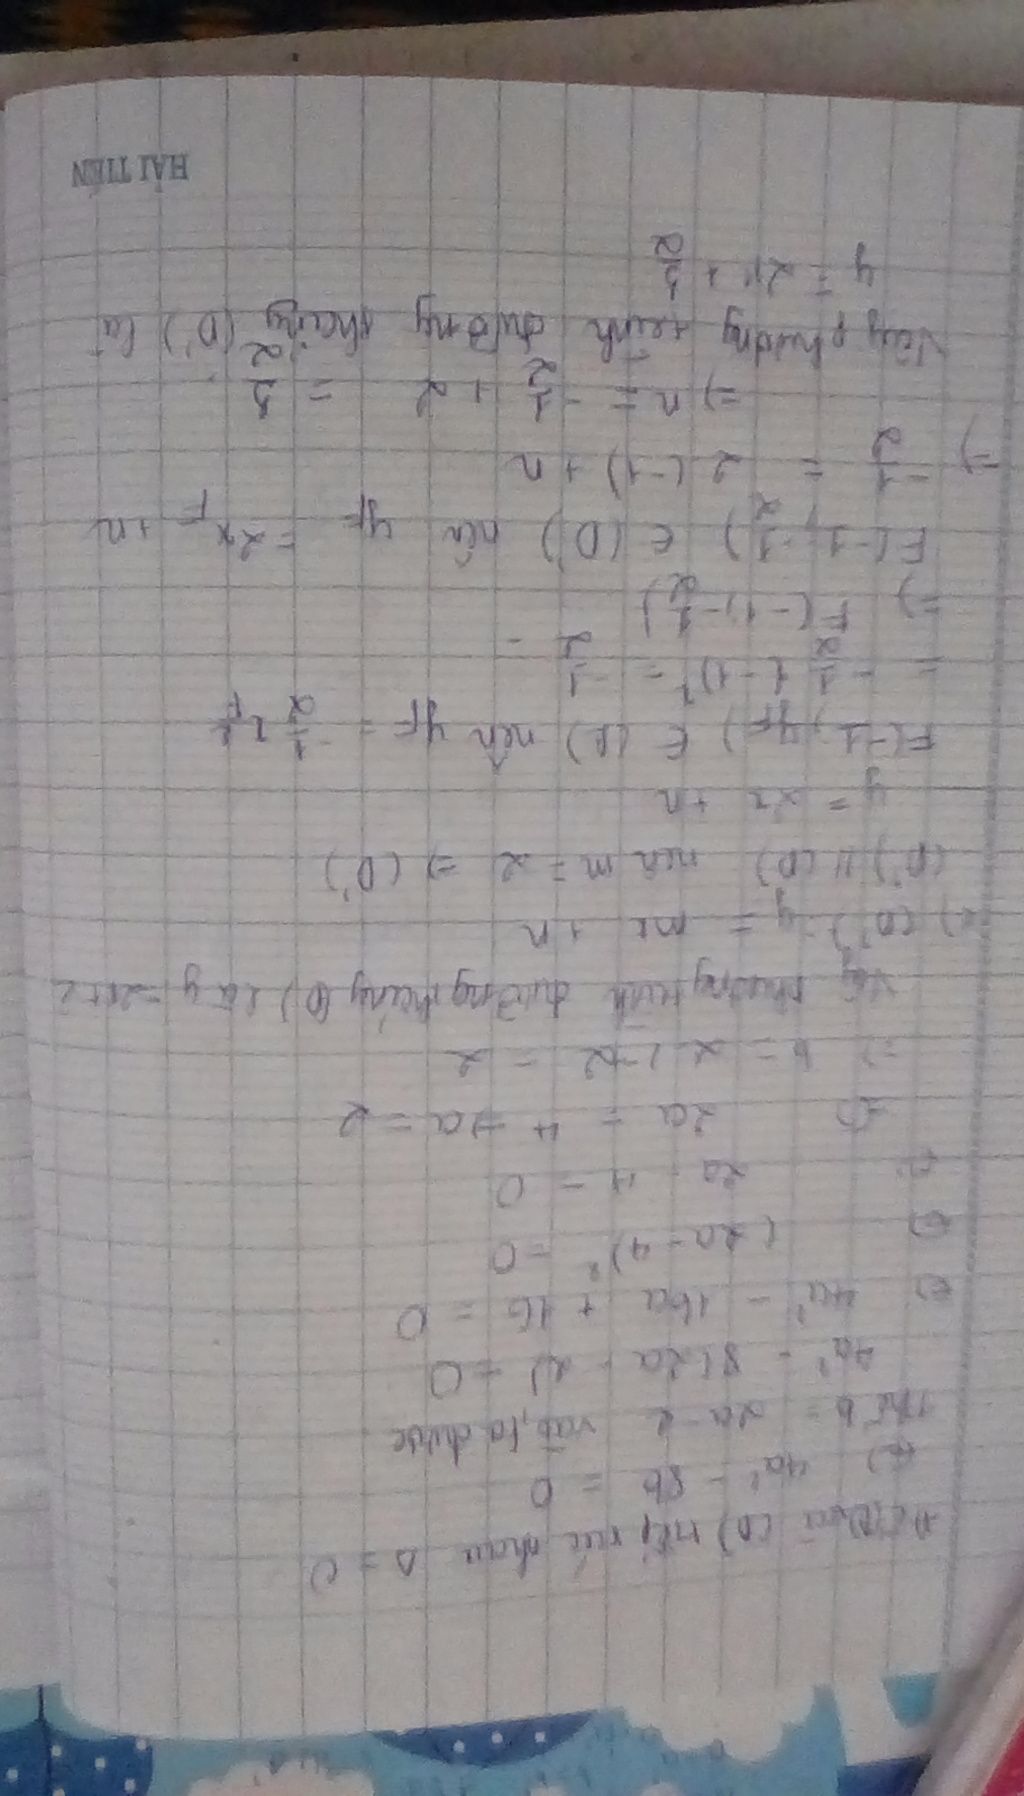 Để (P) và (D) tiếp xúc nhau Δ = 0
⇔ 4a² - 8b = 0
Thế b = 2a - 2 vào, ta được
4a² - 8(2a - 2) = 0
⇔ 4a² - 16a + 16 = 0
⇔ (2a - 4)² = 0
⇔ 2a - 4 = 0
⇔ 2a = 4 ⇒ a = 2
⇒ b = 2.2 - 2 = 2
Vậy phương trình đường thẳng (D) là y = 2x + 2
c) (D') y = mx + n
(D') // (D) nên m = 2 ⇒ (D')
y = 2x + n
F(-1, yF) ∈ (P) nên yF = -1/2 x²F
= -1/2 (-1)² = -1/2
⇒ F(-1, -1/2)
F(-1, -1/2) ∈ (D') nên yF = 2xF + n
⇒ -1/2 = 2(-1) + n
⇒ n = -1/2 + 2 = 3/2
Vậy phương trình đường thẳng (D') là
y = 2x + 3/2
HẢI TIẾN